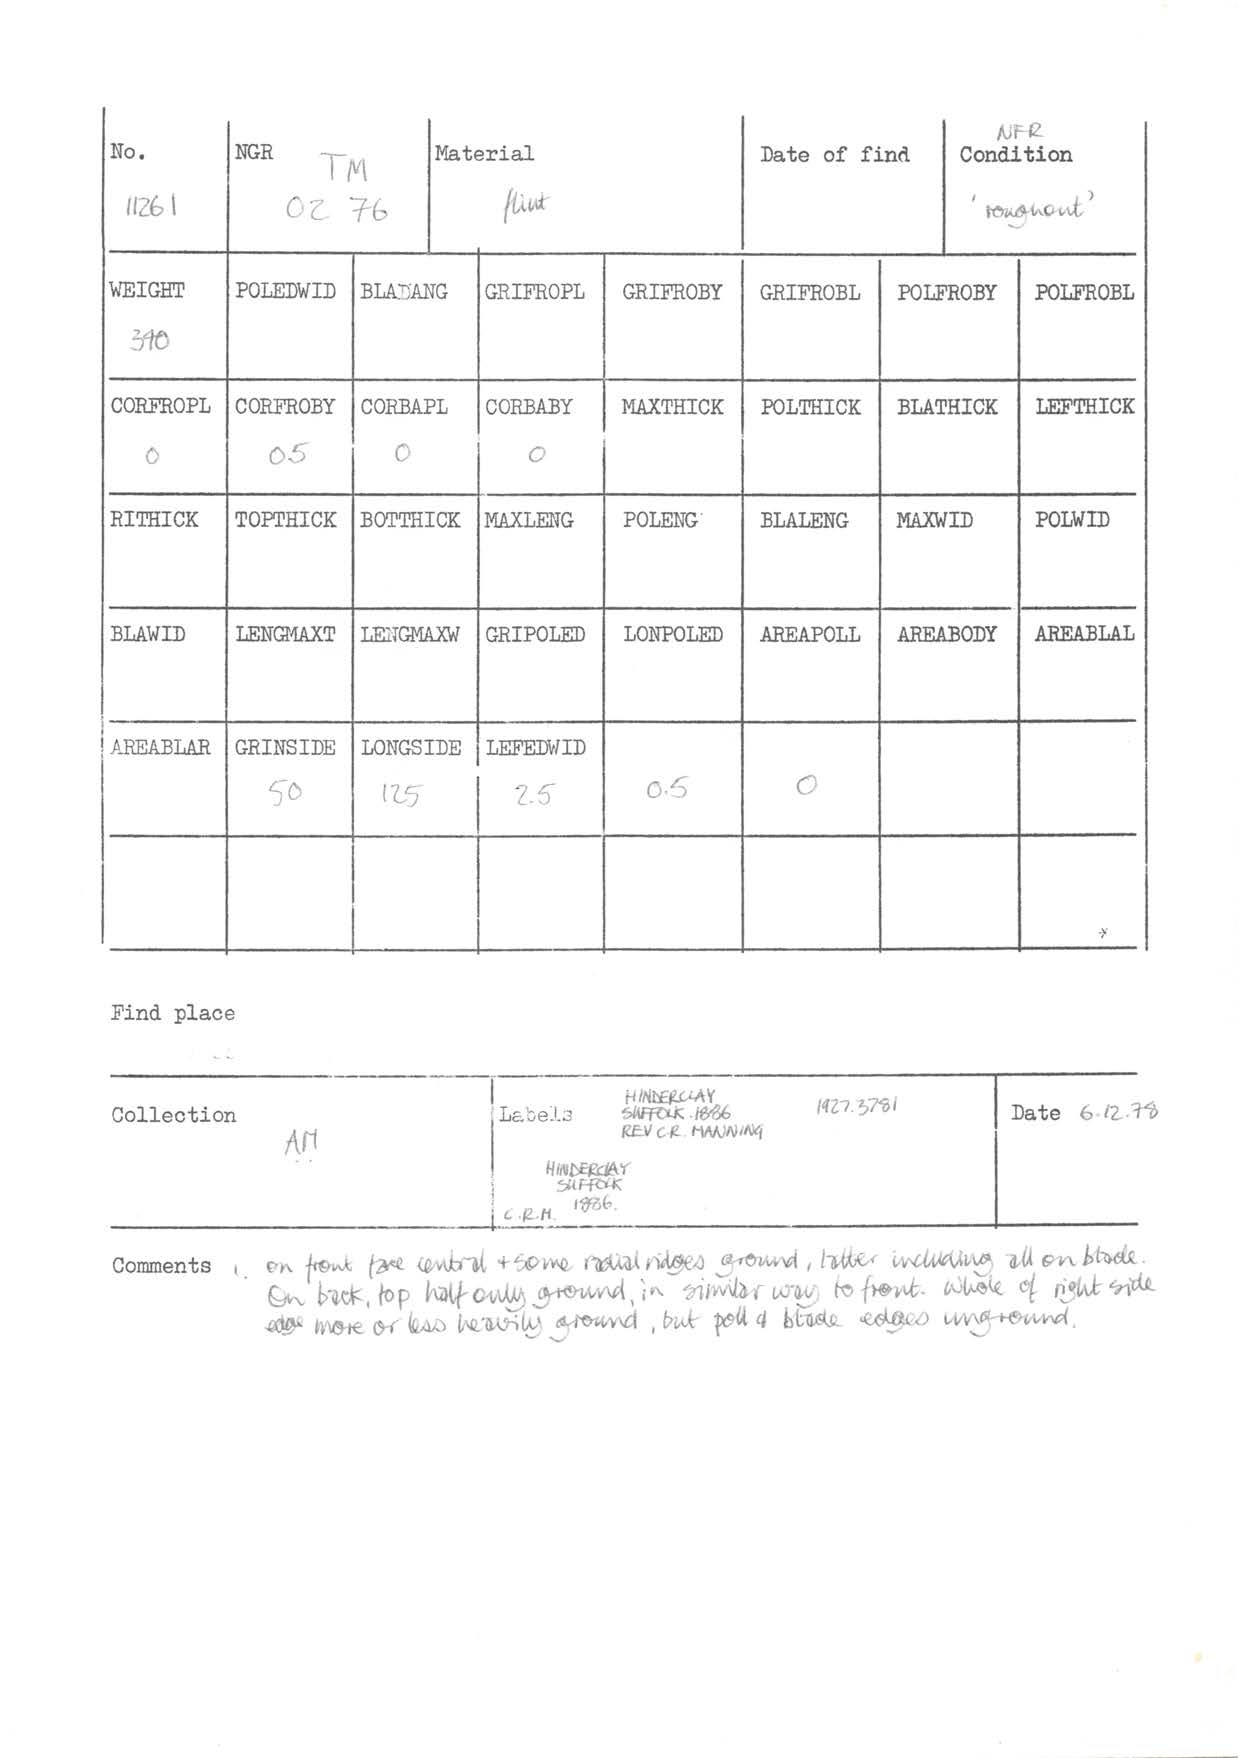 No.
11261
NGR
TM
02 76
Material
flint
Date of find
NFR
Condition
'roughout'
WEIGHT POLEDWID BLADANG GRIFROPL GRIFROBY GRIFROBL POLFROBY POLFROBL
390
CORFROPL CORFROBY CORBAPL CORBABY MAXTHICK POLTHICK BLATHICK LEFTHICK
0 05 0 0
RITHICK TOPTHICK BOTTHICK MAXLENG POLENG BLALENG MAXWID POLWID
BLAWID LENGMAXT LENGMAXW GRIPOLED LONPOLED AREAPOLL AREABODY AREABLAL
AREABLAR GRINSIDE LONGSIDE LEFEDWID
50 125 2.5 0.5 0
Find place
Collection
AM
Labels
HINDERCLAY
SUFFOLK. 1886
REV C.R. MANNING
1927.3781
HINDERCLAY
SUFFOLK
1886.
C.R.M.
Date 6.12.78
Comments 1. on front face central + some radial ridges ground, latter including all on blade.
On back, top half only ground, in similar way to front. Whole of right side
edge more or less heavily ground, but poll & blade edges unground.